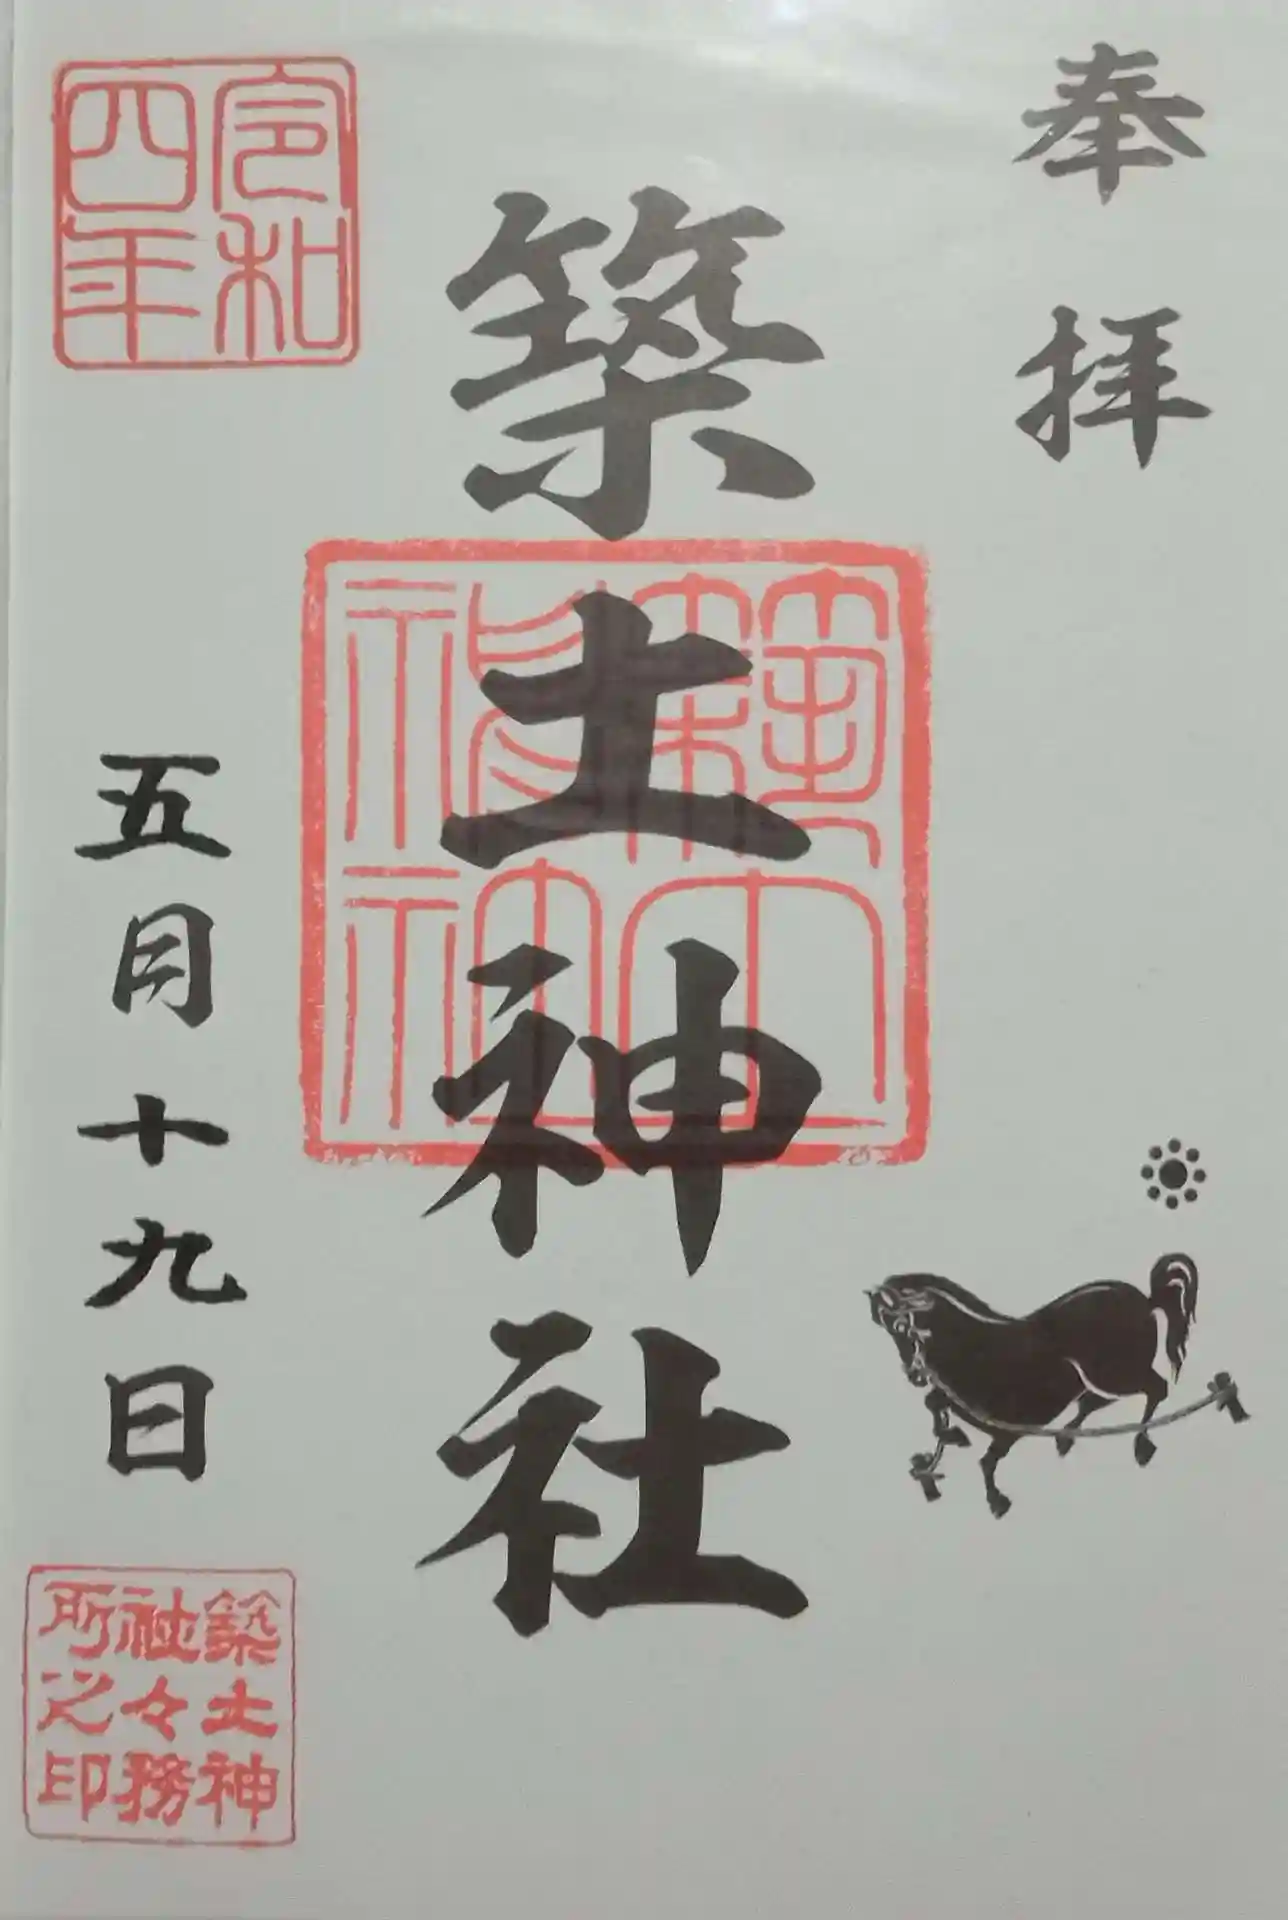 奉拝
築土神社
築土神社
令和四年
五月十九日
築土神
社々務
所之印